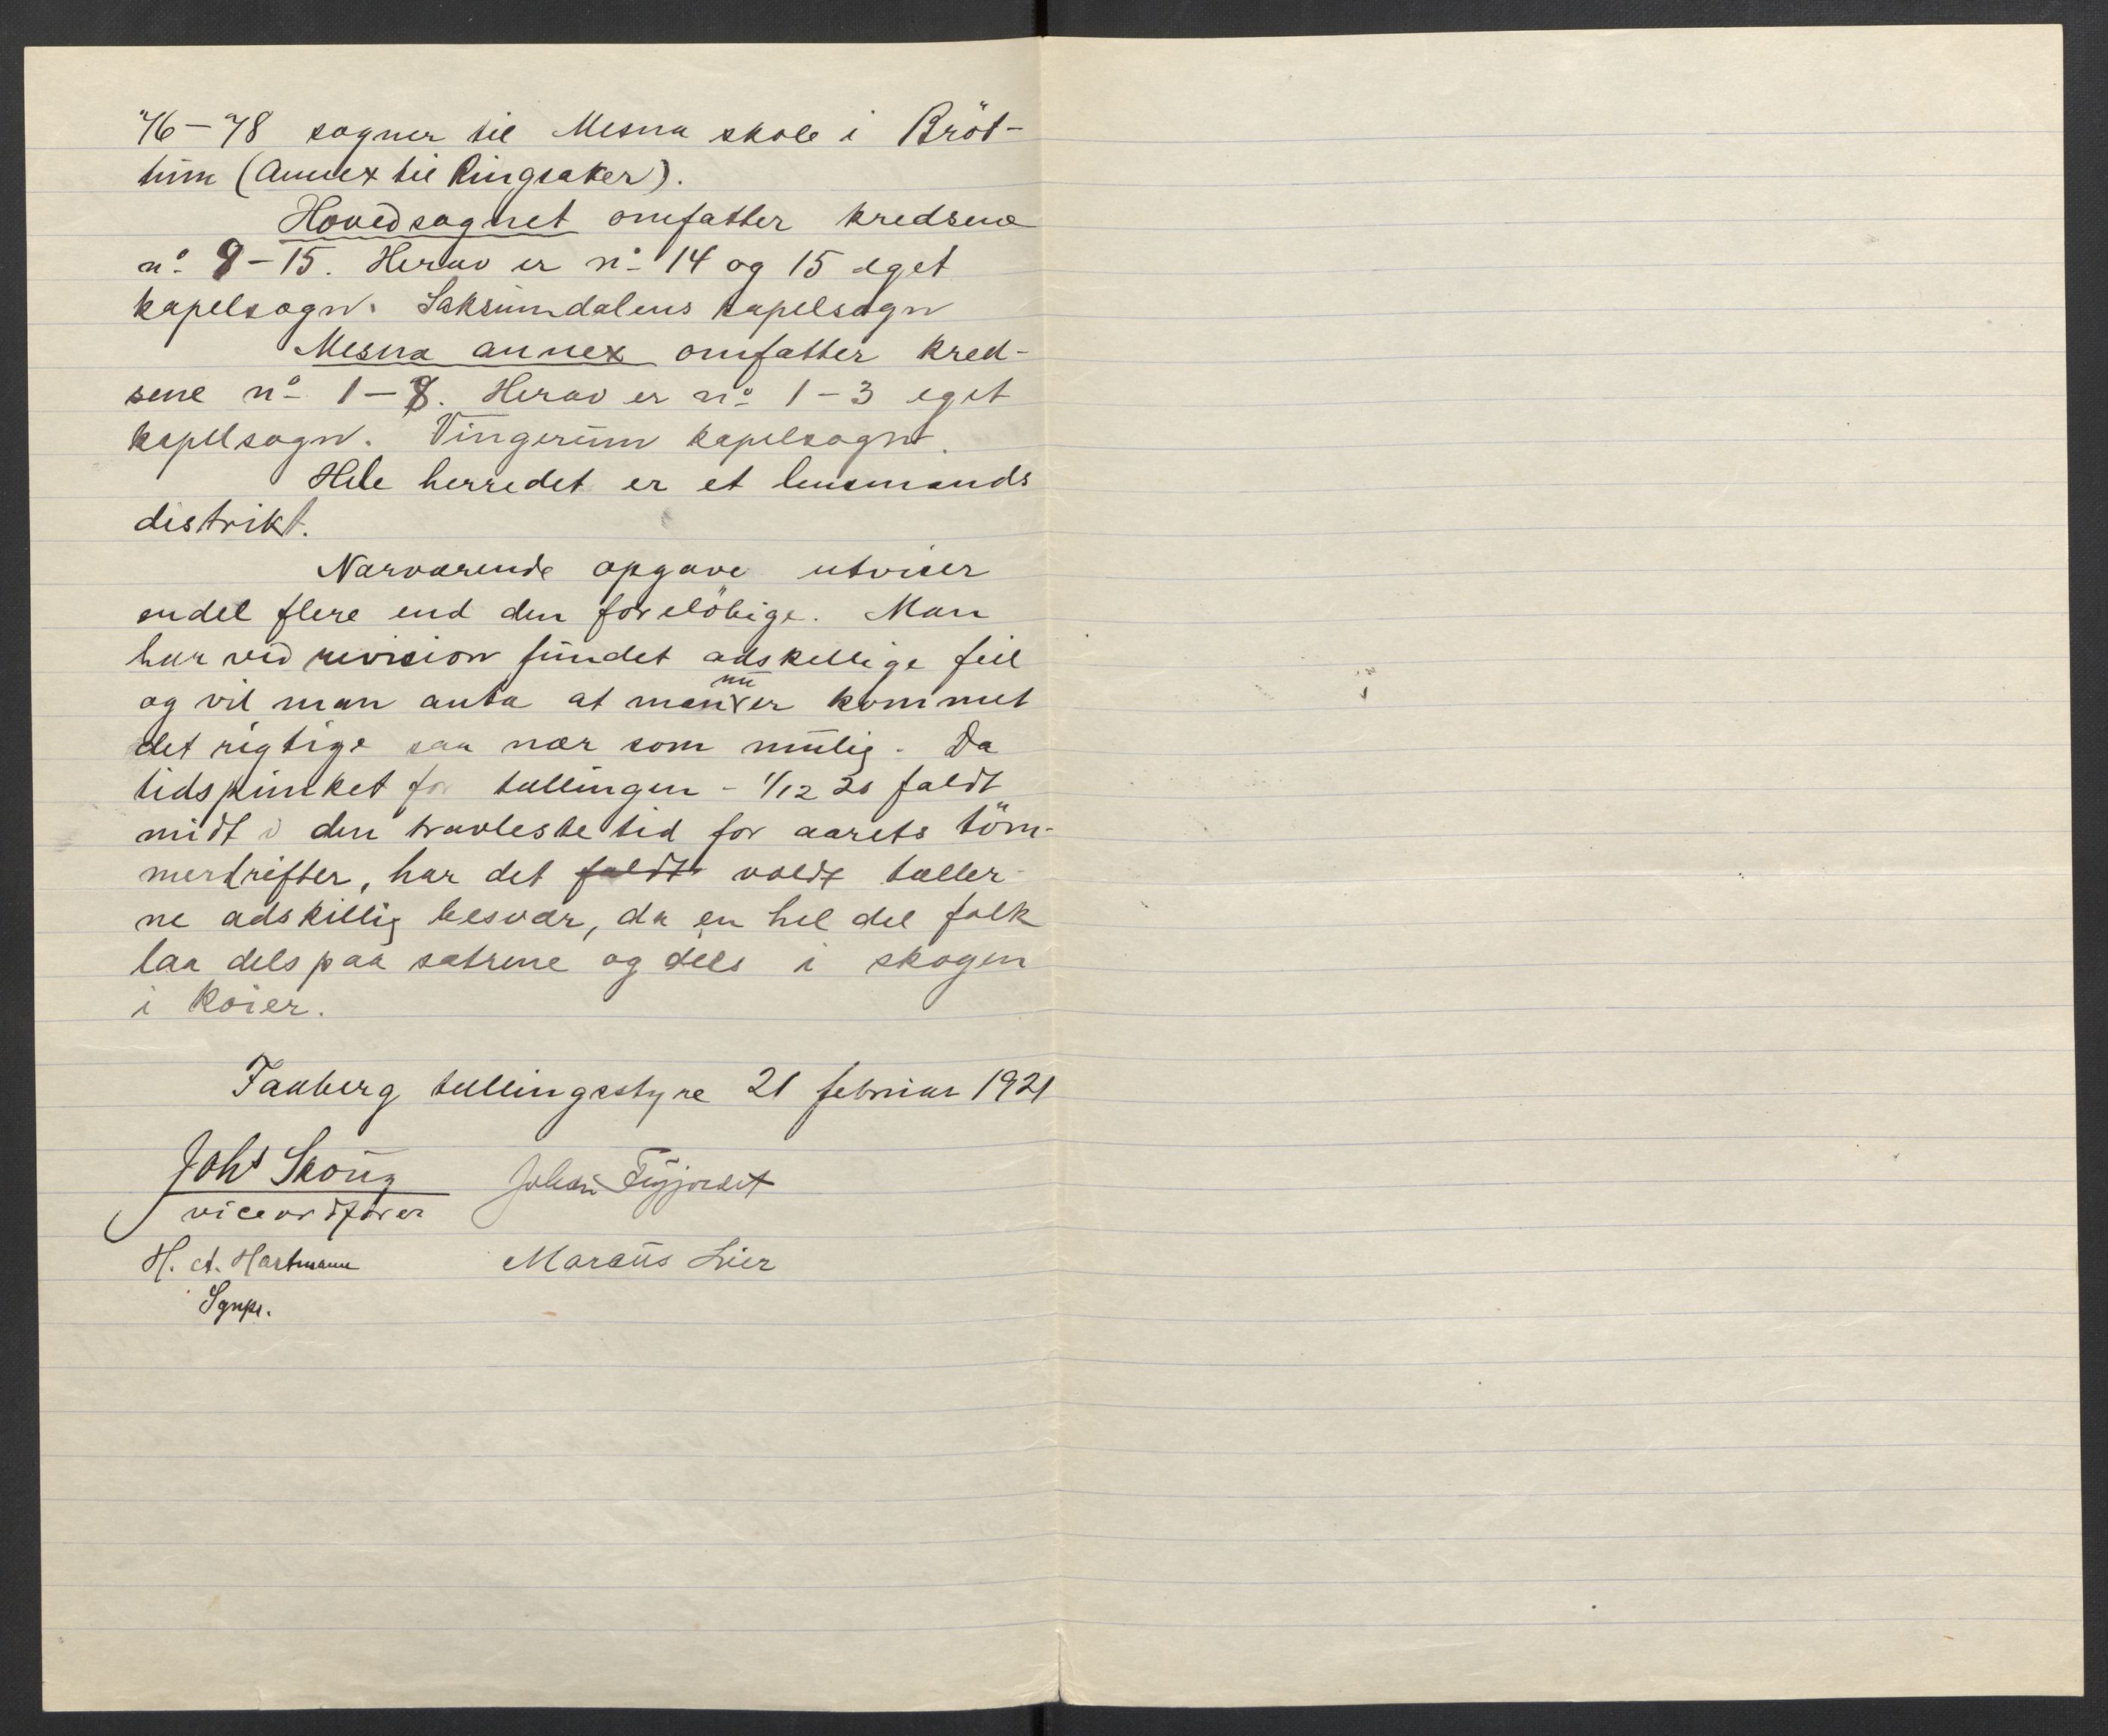 76–78 sogner til Mesna skole i Bröt-
tum (Annex til Ringsaker).
Hovedsognet omfatter kredsene
nº 9–15. Herav er nº 14 og 15 eget
kapelsogn. Saksumdalens kapelsogn
Mesna annex omfatter kred-
sene nº 1–8. Herav er nº 1–3 eget
kapelsogn. Vingerum kapelsogn.
Hele herredet er et lensmands
distrikt.
Nærværende opgave utviser
endel flere end den foreløbige. Man
har ved revision fundet adskellige feil
og vil man anta at man nu er kommet
det rigtige saa nær som mulig. Da
tidspunket for tællingen – 1/12 20 faldt
midt i den travleste tid for aarets töm-
merdrifter, har det faldt voldt tæller-
ne adskillig besvær, da en hel del folk
laa dels paa sætrene og dels i skogen
i koier.
Faaberg tællingsstyre 21 februar 1921
Joht Skoug Johan
viceordfører
H. A. Hartmann Marius Lier
Sgnpr.